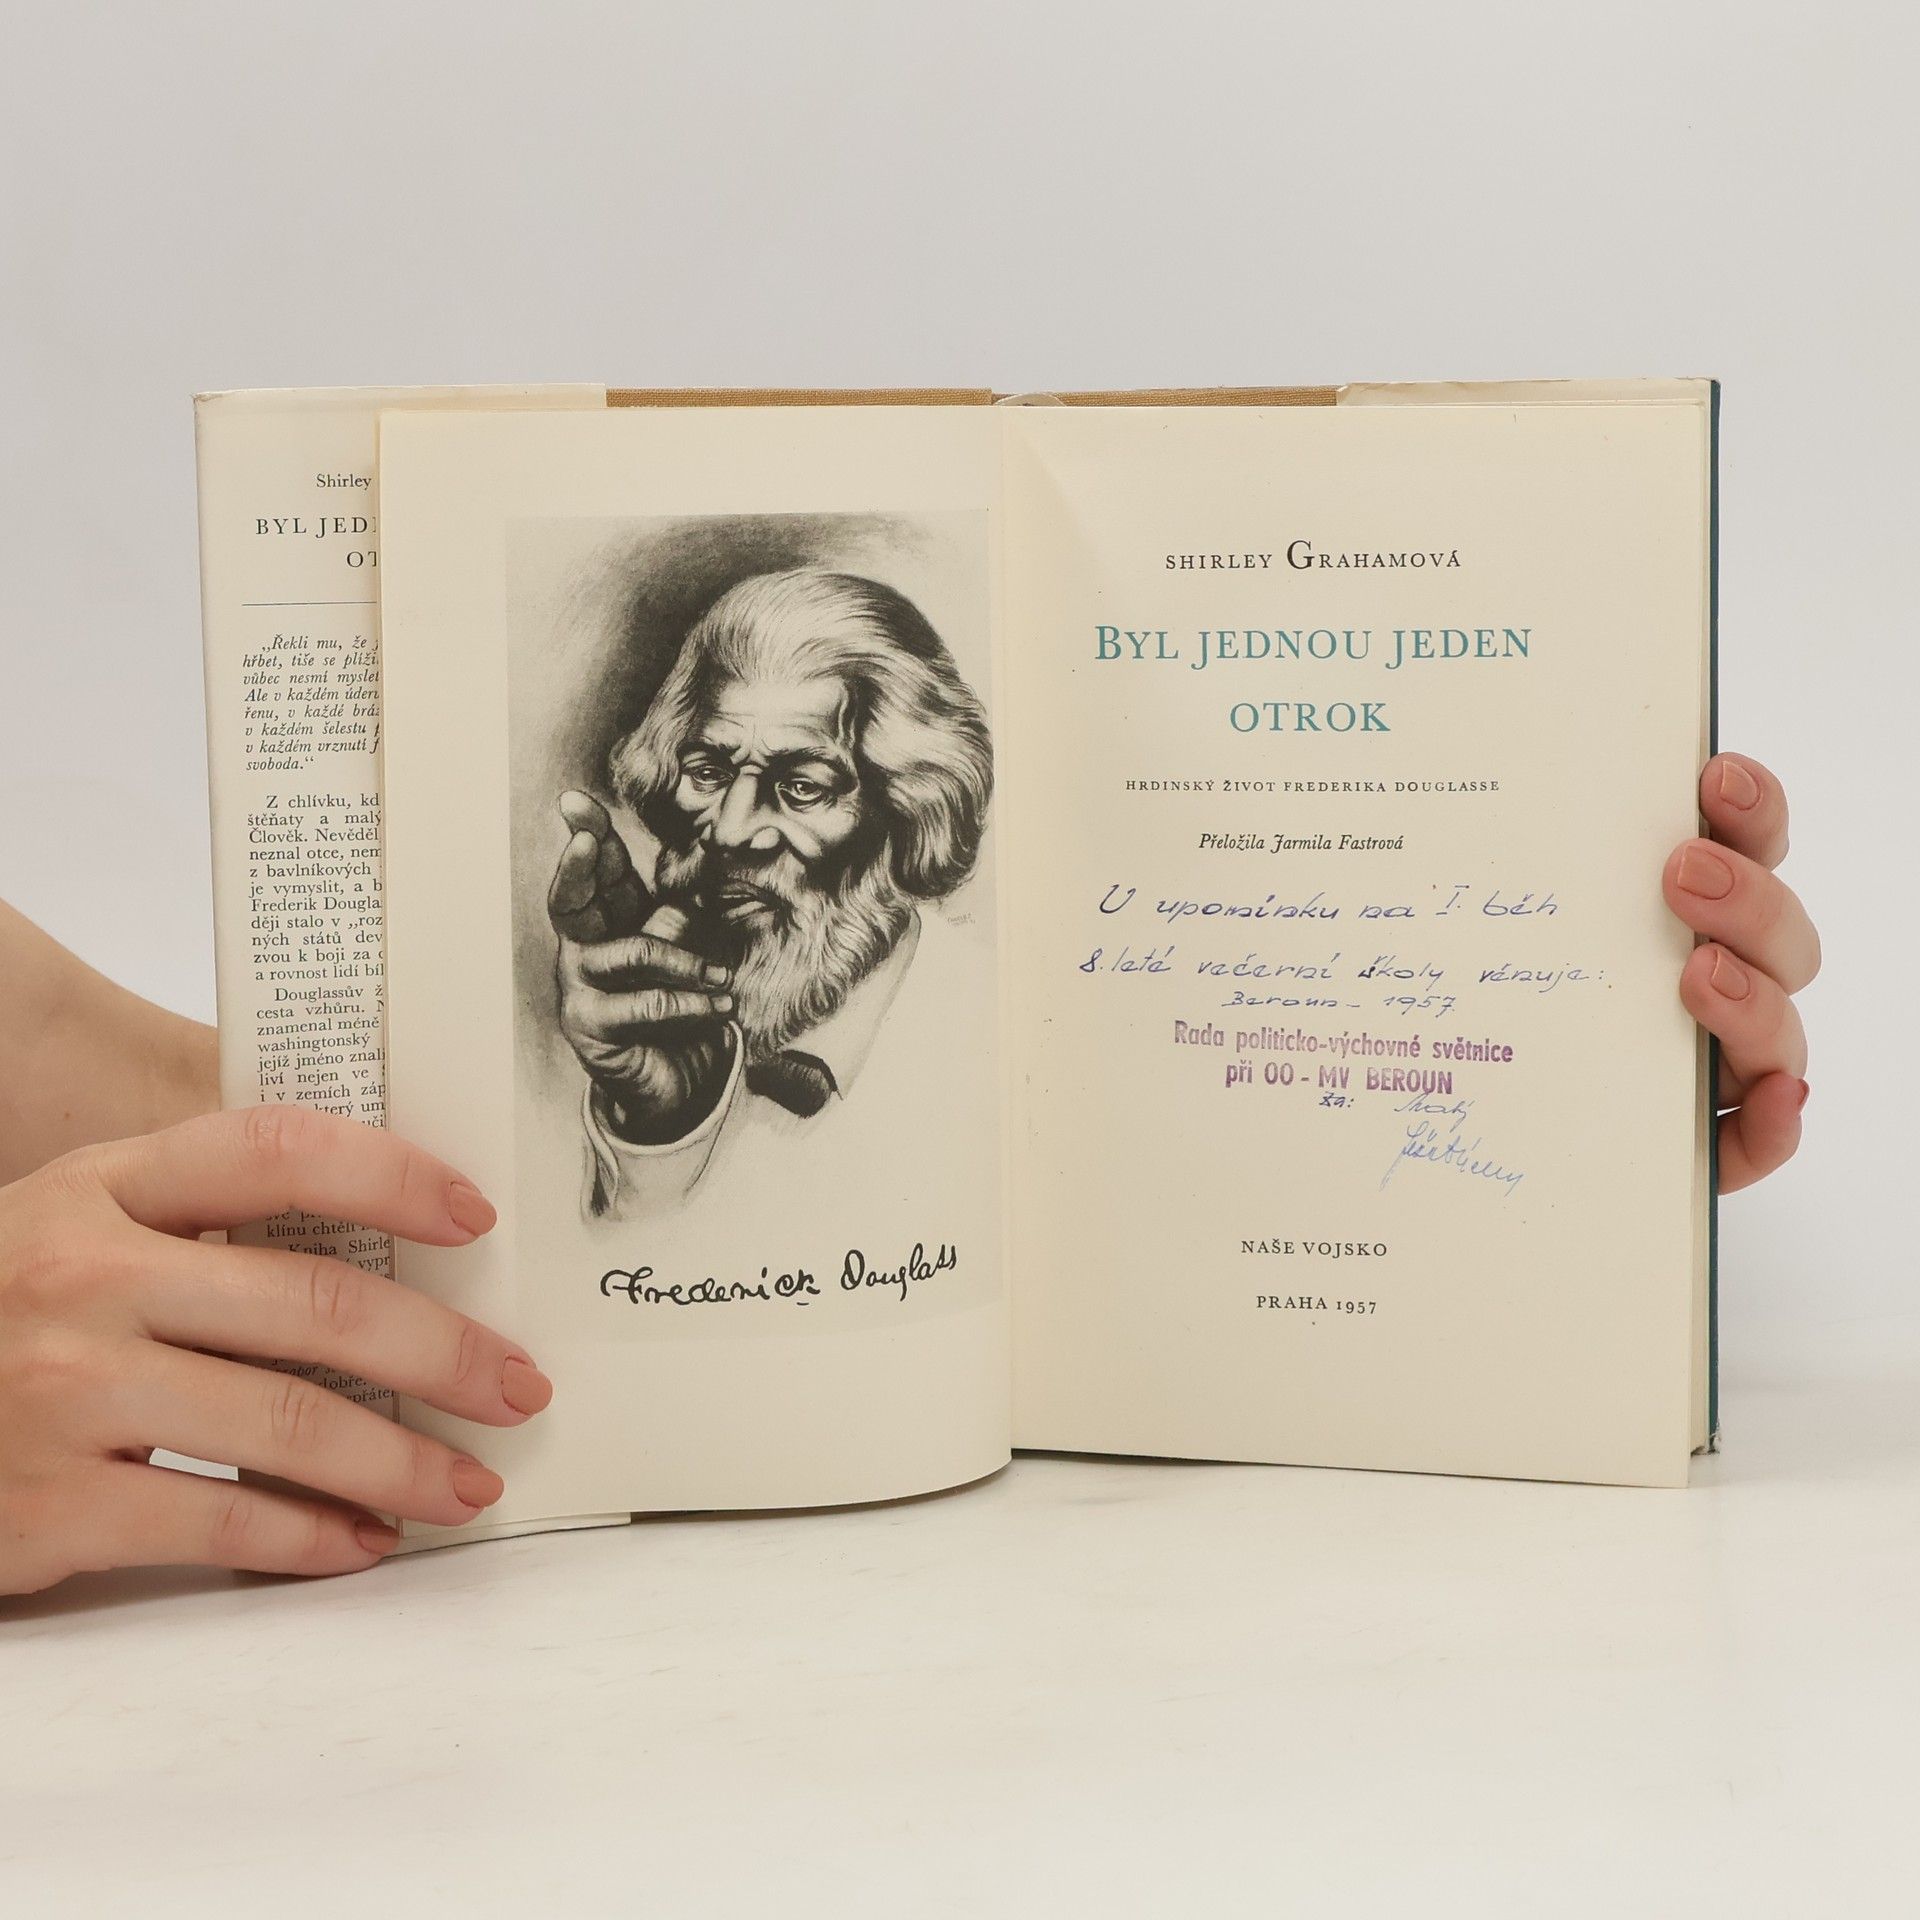 Shirley
BYL JED
OT
„Řekli mu, že
hřbet, tiše se plíži
vůbec nesmí myslet
Ale v každém úderu
řenu, v každé bráz
v každém šelestu
v každém vrznutí
svoboda.“
Z chlívku, kd
štěňaty a malý
Člověk. Nevěděl
neznal otce, nem
z bavlníkových
je vymyslit, a b
Frederik Dougla
ději stalo v „roz
ných států dev
zvou k boji za
a rovnost lidí bíl
Douglassův ž
cesta vzhůru. N
znamenal méně
washingtonský
jejíž jméno znal
liví nejen ve
i v zemích záp
který um
učí
klínu chtěli
Kniha Shirle
vypr
dobře.
přátel
Frederick Douglass
SHIRLEY GRAHAMOVÁ
BYL JEDNOU JEDEN
OTROK
HRDINSKÝ ŽIVOT FREDERIKA DOUGLASSE
Přeložila Jarmila Fastrová
U upomínku na I. běh
8. leté večerní školy věnuje:
Beroun - 1957.
Rada politicko-výchovné světnice
při OO - MV BEROUN
za:
NAŠE VOJSKO
PRAHA 1957